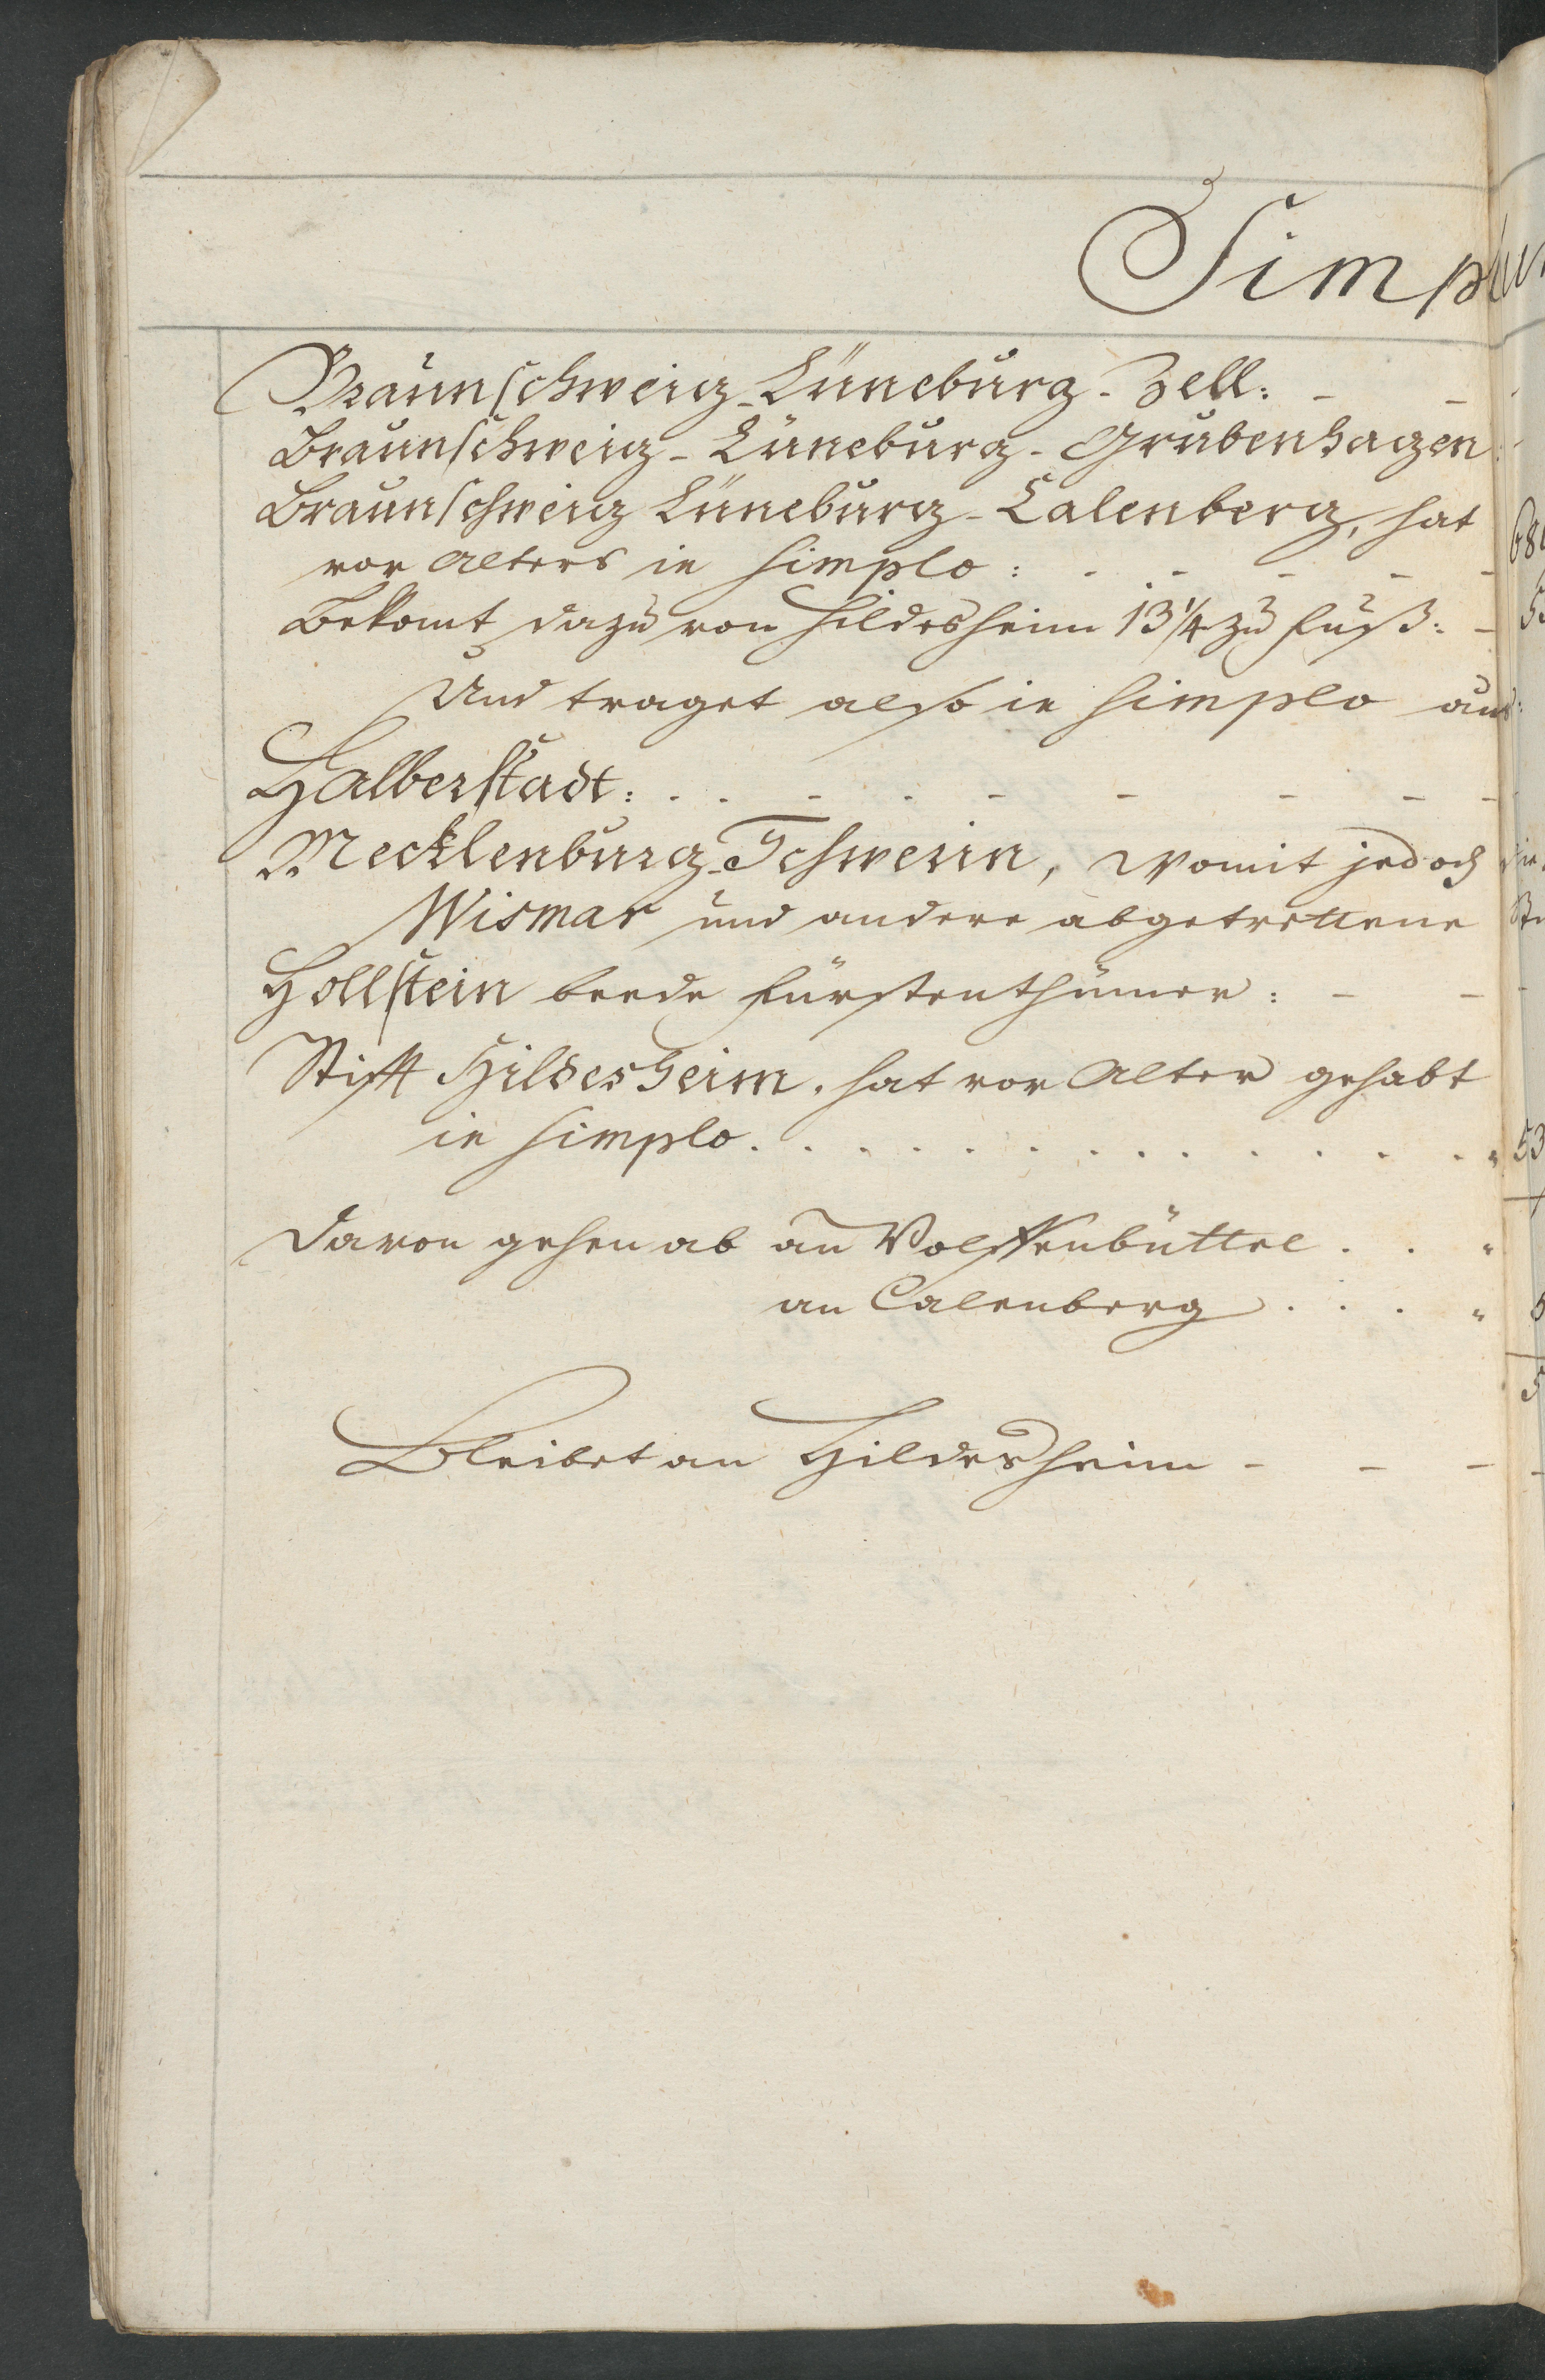 Simplu
Braunschweig-Lüneburg-Zell: - -
Braunschweig-Lüneburg-Grubenhagen
Braunschweig Lüneburg-Calenberg, hat
vor Alters in simplo: - - - - -
Bekomt dazu von Hildesheim 13 1/4 zu Fuß: -
Und traget also in simplo aus:
Halberstadt: . . - . - - - - -
Mecklenburg-Schwerin, womit jedoch die
Wismar und andere abgetrettene
Hollstein beede Fürstenthümer: - -
Stifft Hildesheim. hat vor Alter gehabt
in simplo. . . . . . . . . . . . . 53
Davon gehen ab an Wolffenbüttel . . "
an Calenberg . . . "
Bleibet an Hildesheim - - -